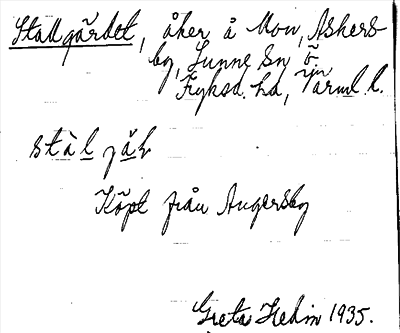 Stallgärdet, åker å Mon, Askers-
by, Sunne Sn ö
Fryksd. hd, Värml. l.
stàl jäṣ
Köpt från Angersby
Greta Hedin 1935.